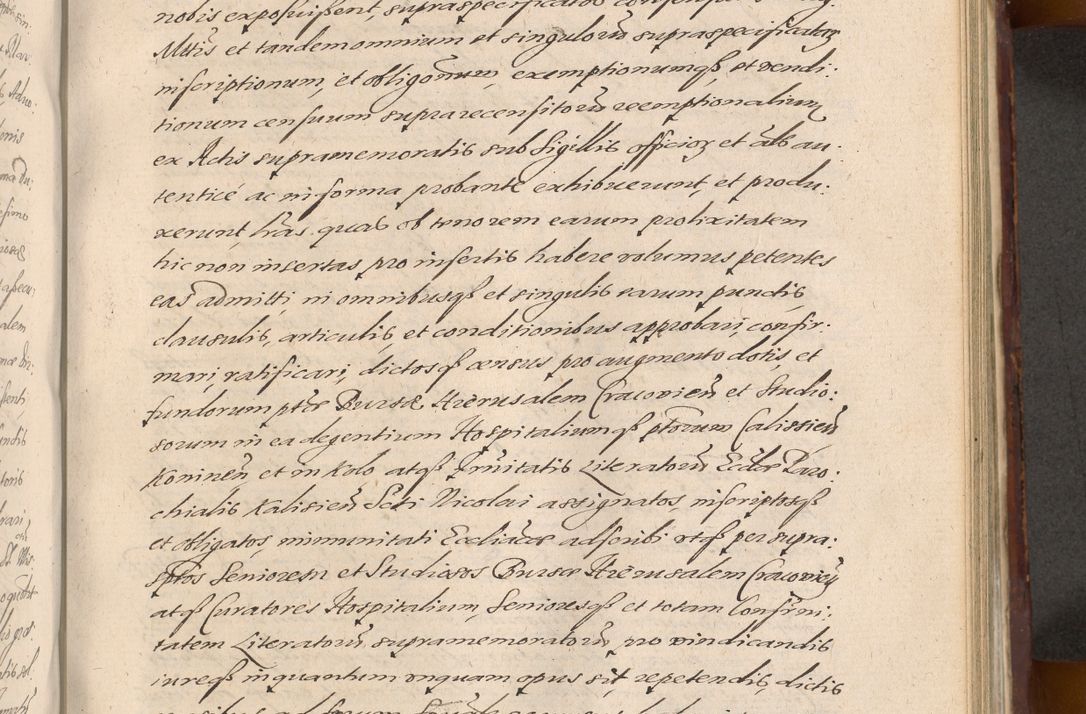 nobis exposuissent, supraspecificatos
Mttis et tandem omnium et singuloru supraspecificatoru
inscriptionum, et obligonum, exemptionumqs, et vendi:
tionum censuum suprarecensitoru reemptionalium
ex Actis supramemoratis sub Sigillis officior et als au:
tenticé ac in forma probante exhibuerunt, et produ:
xerunt, lras quas ob tenorem earum prolixitatem
hic non insertas pro insertis habere volumus petentes
eas admitti, in omnibusqs et singulis earum punctis,
clausulis, articulis, et conditionibus approbari, confir:
mari, ratificari, dictosqs census, pro augmento dotis, et
fundorum ptæ Bursæ Hierusalem Cracovien et Studio:
sorum in ea degentium Hospitaliumqs ptorum Calissien
Koninen, et in Kolo atqs Frnitatis Literatoru Ecclæ Paro:
chialis Kalisien Scti Nicolai assignatos, inscriptosqs
et obligatos, immunitati Eccliacæ adscribi utqs per supra:
sptos Seniorem et Studiosos Bursæ Hierusalem Cracovien
atqs Curatores Hospitalium, Senioresqs et totam Confrni:
tatem Literatoru supramemoratoru pro vindicandis
iureqs inquantum unquam opus sit, repetendis, dictis